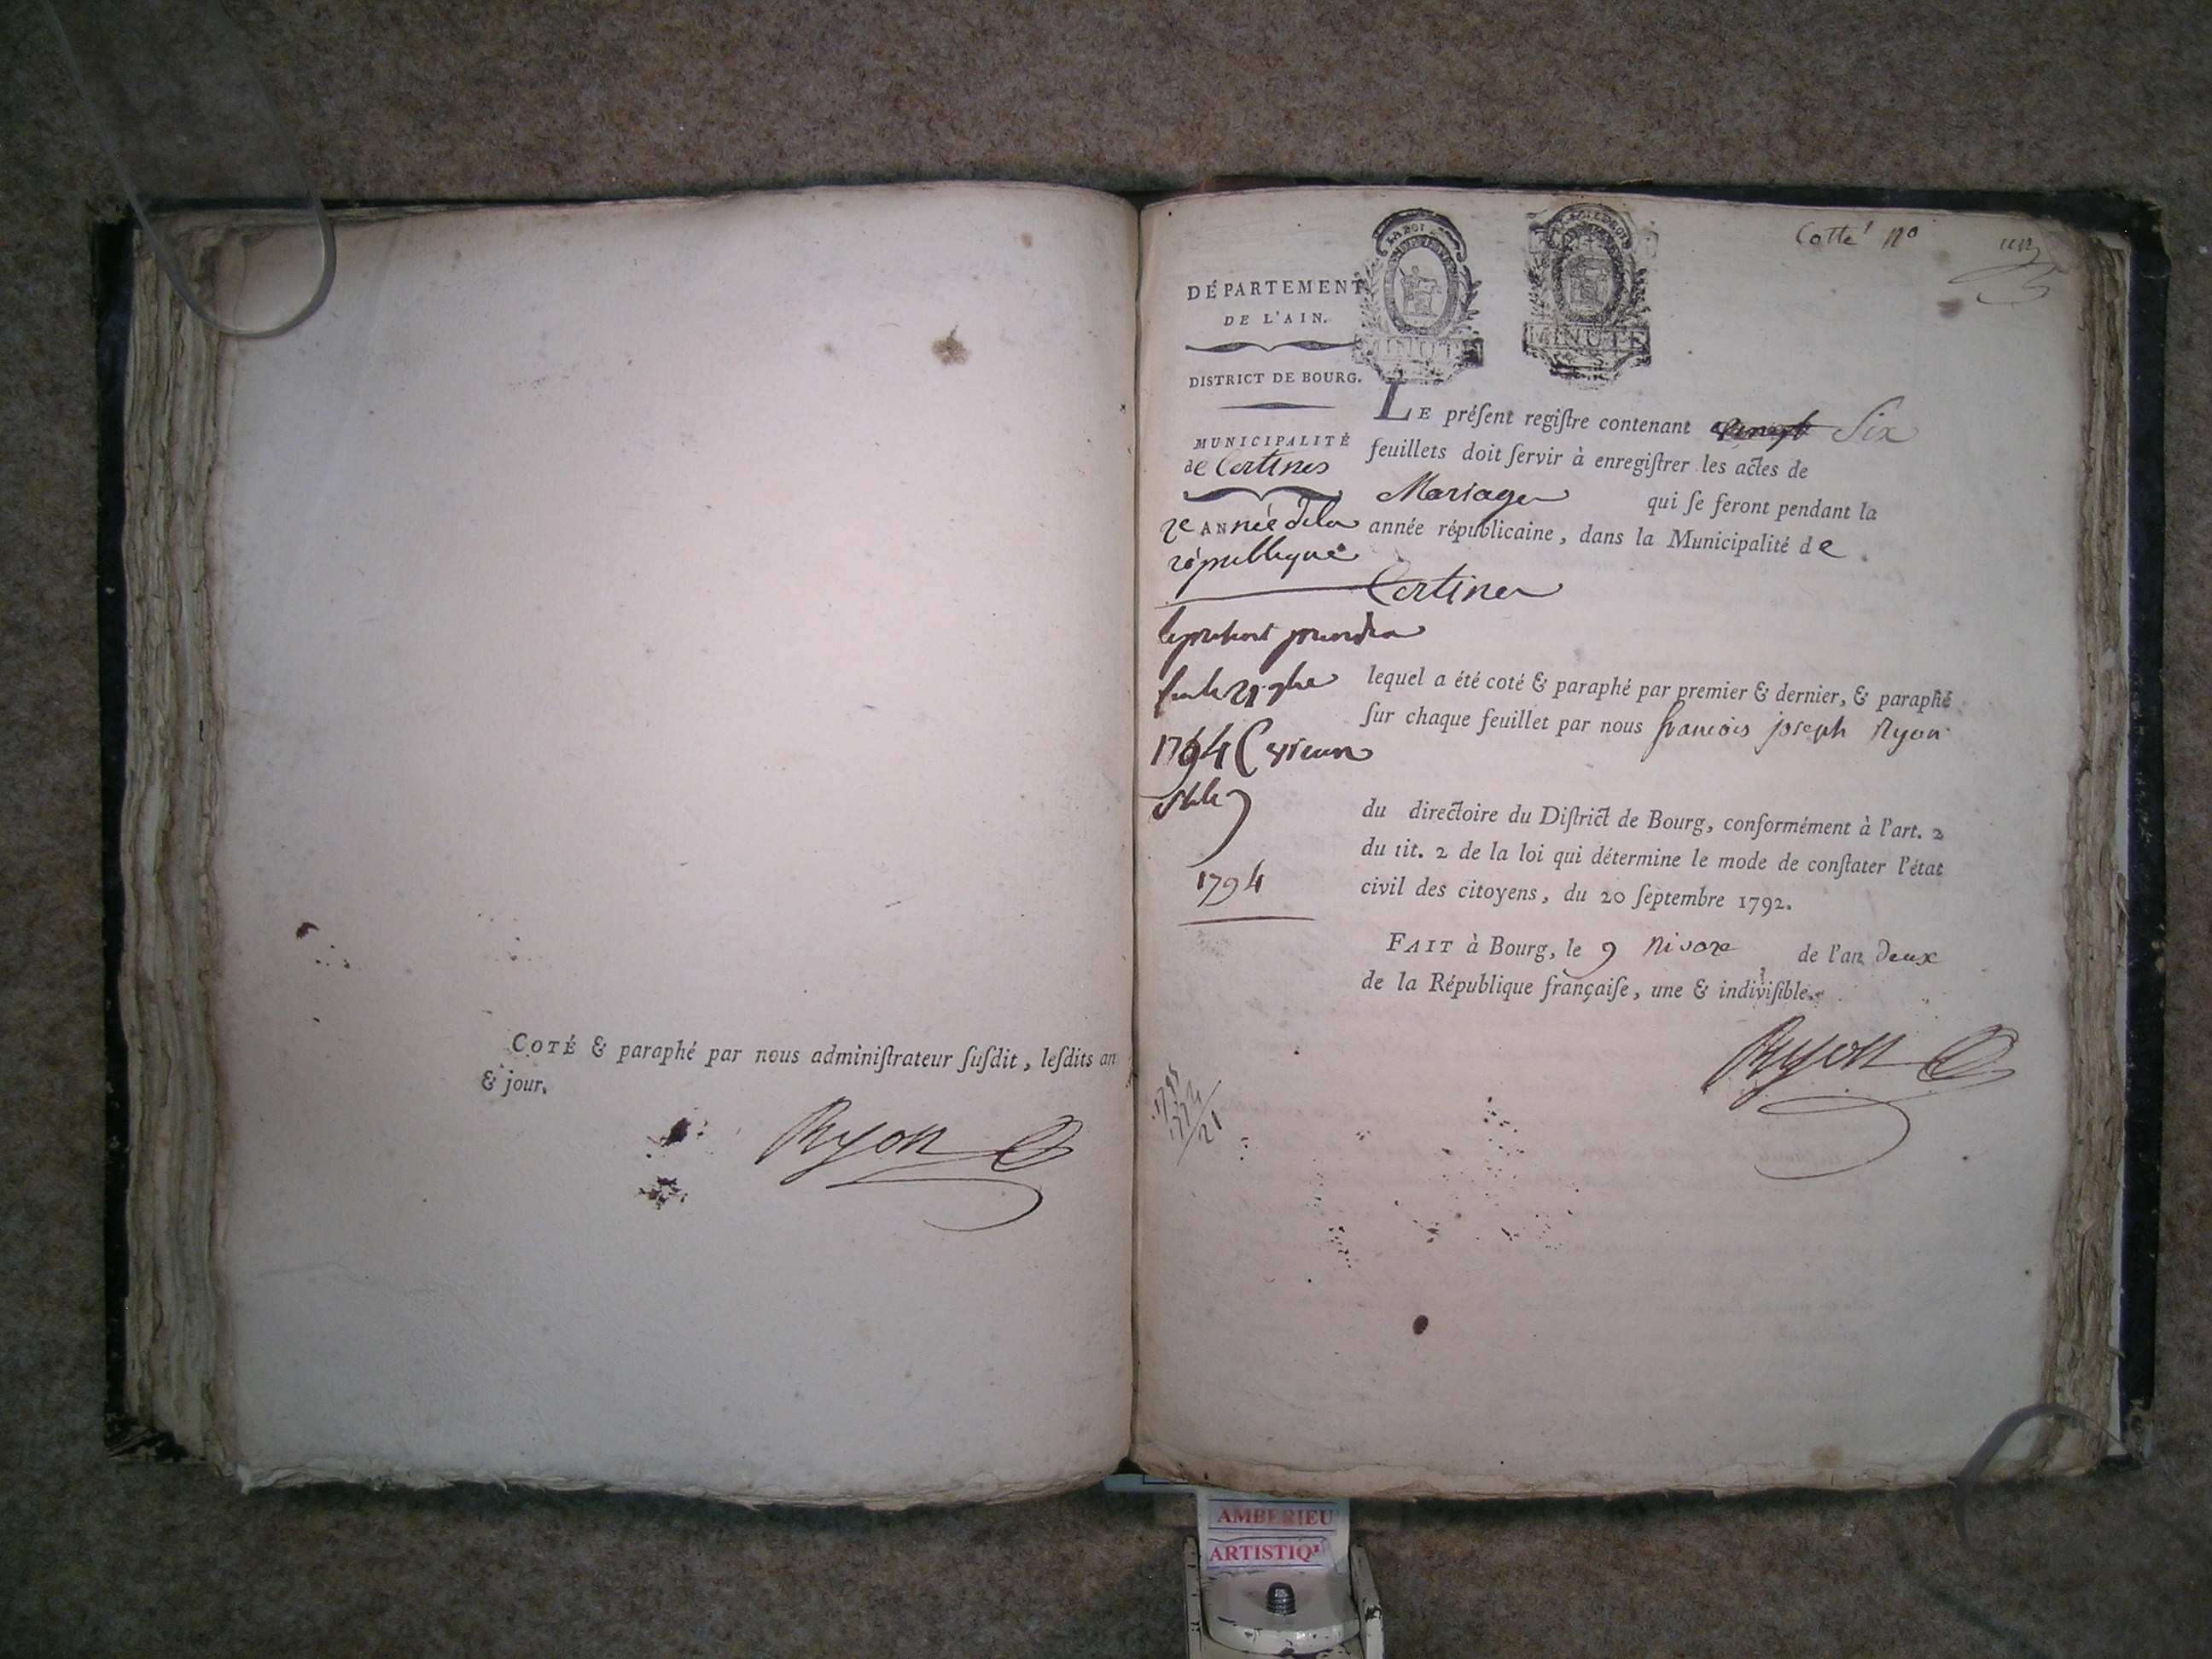 COTÉ & paraphé par nous adminiſtrateur ſuſdit, leſdits an
& jour.
Ryon
Cotté nº un
LA LOI
MINUTE
MINUTE
DÉPARTEMENT
DE L'AIN.
DISTRICT DE BOURG.
MUNICIPALITÉ
de Certines
2e ANnée dela
république
le présent prendra
21 9bre
1794 (vieux
stile)
1794
LE préſent regiſtre contenant vingt Six
feuillets doit ſervir à enregiſtrer les actes de
Mariage qui ſe feront pendant la
année républicaine, dans la Municipalité de
Certines
lequel a été coté & paraphé par premier & dernier, & paraphé
ſur chaque feuillet par nous françois joseph Ryon
du directoire du Diſtrict de Bourg, conformément à l'art. 2
du tit. 2 de la loi qui détermine le mode de conſtater l'état
civil des citoyens, du 20 ſeptembre 1792.
FAIT à Bourg, le 9 nivose de l'an deux
de la République françaiſe, une & indiviſible.
Ryon
21
AMBERIEU
ARTISTIQ